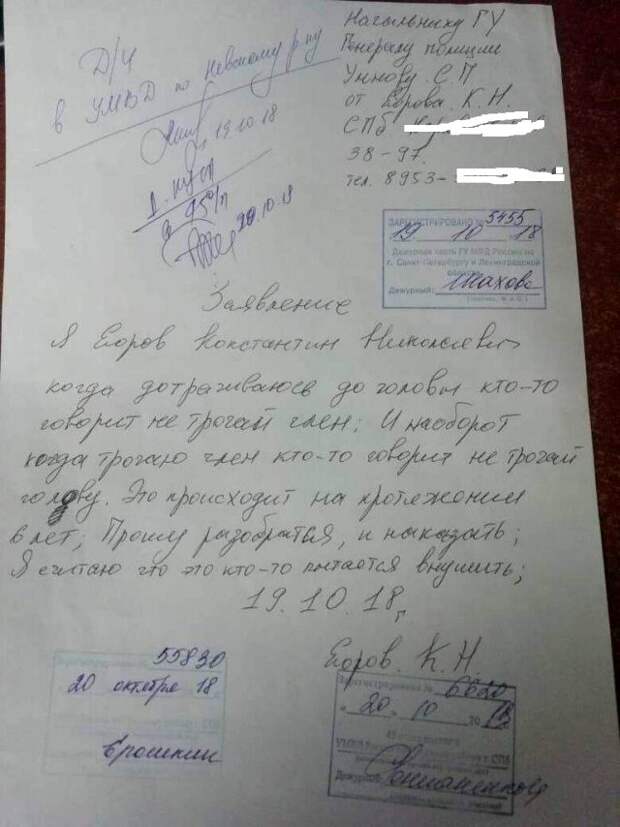 Начальнику ГУ
Генералу полиции
Умнову. С.П
от Егорова. К.Н.
СПб
38-97.
тел. 8953-
Д/Ч
в УМВД по Невскому р-ну
19.10.18
20.10.18
ЗАРЕГИСТРИРОВАНО № 5455
19 10 18
Дежурная часть ГУ МВД России по
г. Санкт-Петербургу и Ленинградской
области
Дежурный:
Заявление
Я Егоров Константин Николаевич
когда дотрагиваюсь до головы кто-то
говорит не трогай член; И наоборот
когда трогаю член кто-то говорит не трогай
голову. Это происходит на протяжении
6 лет; Прошу разобратся, и наказать;
Я считаю что это кто-то пытается внушить;
19.10.18 г.
Егоров. К.Н.
55830
20 октября 18
Ерошкин
Зарегистрировано № 6620
" 20 " 10 20 18
Дежурный: